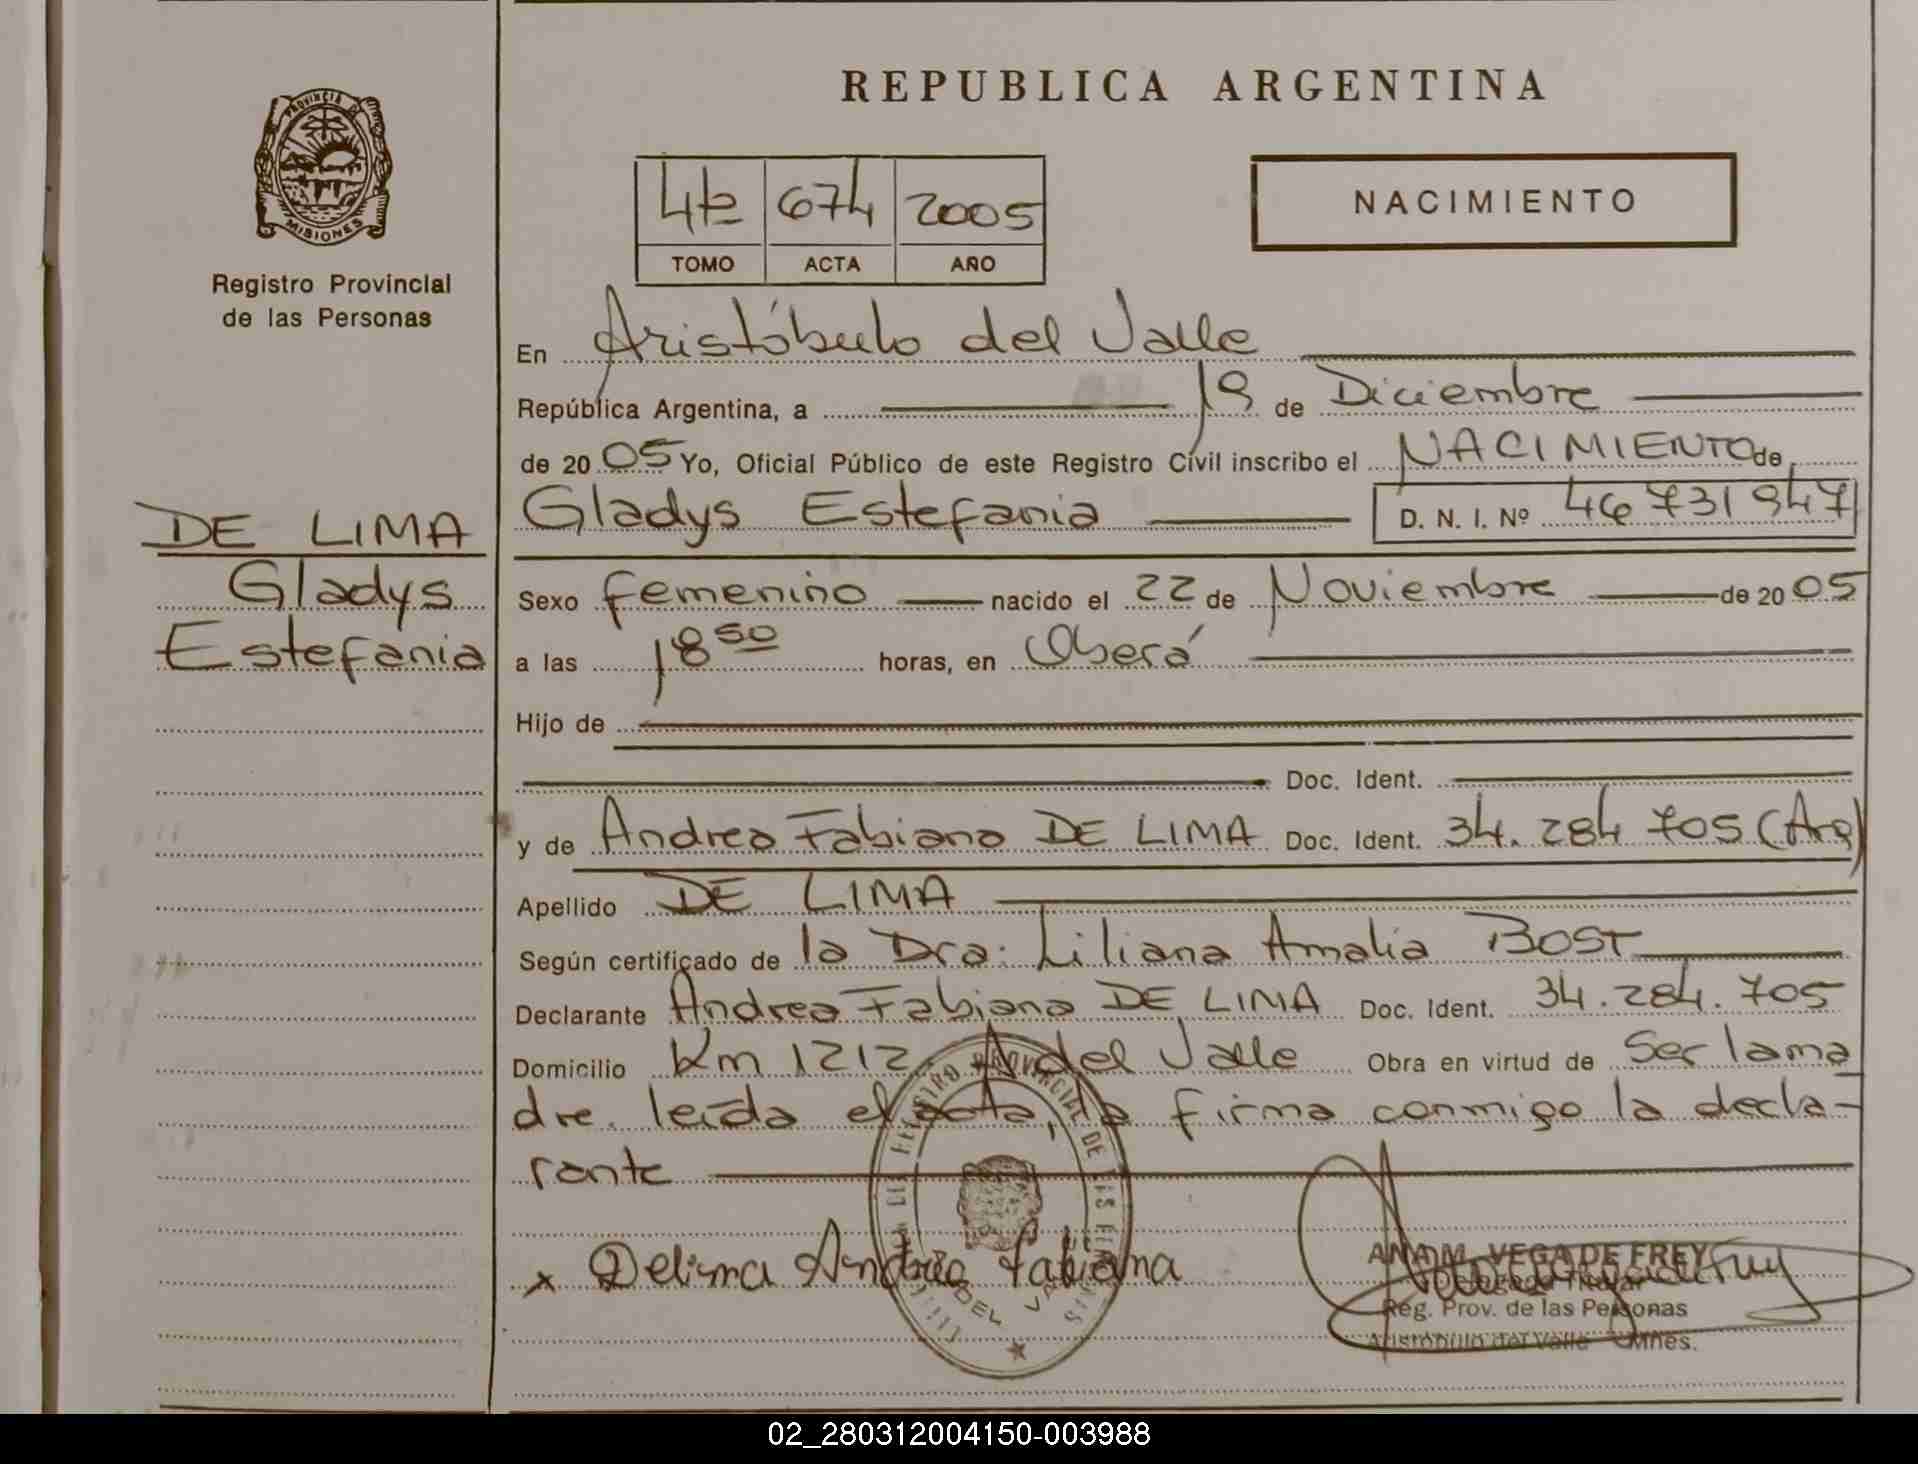 REPUBLICA ARGENTINA
PROVINCIA D
MISIONES
Registro Provincial
de las Personas
674 2005
TOMO ACTA AÑO
NACIMIENTO
En Aristóbulo del Valle
República Argentina, a 19 de Diciembre
de 2005 Yo, Oficial Público de este Registro Civil inscribo el NACIMIENTO de
Gladys Estefania D. N. I. Nº 46731947
DE LIMA
Gladys
Estefania
Sexo femenino nacido el 22 de Noviembre de 2005
a las 18 50 horas, en Oberá
Hijo de
Doc. Ident.
y de Andrea Fabiana DE LIMA Doc. Ident. 34.284.705 (Arg)
Apellido DE LIMA
Según certificado de la Dra: Liliana Amalia BOST
Declarante Andrea Fabiana DE LIMA Doc. Ident. 34.284.705
Domicilio Km 1212 A del Valle Obra en virtud de Ser la ma
dre. leída el acta, la firma conmigo la decla-
rante
x Delima Andrea Fabiana
ANA M. VEGA DE FREY
Delegada Titular
Reg. Prov. de las Personas
Aristóbulo del Valle - Mnes.
02_280312004150-003988